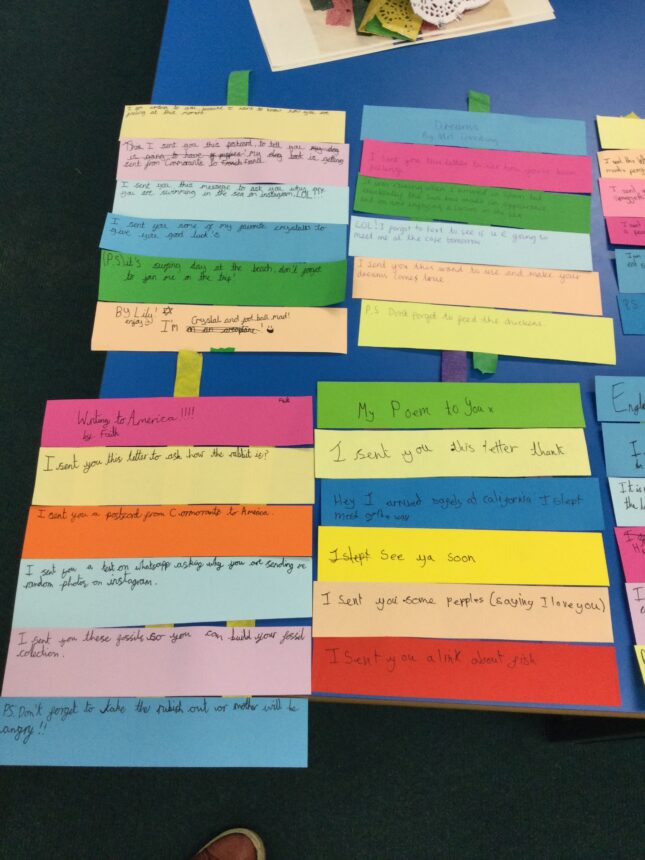 I am writing to ask, because I want to know how you are
feeling at this moment
This I sent you this postcard, to tell you my dog
is going to have puppies. My dog book is getting
sent from Cormorants to
I sent you this message to ask you why
you are swimming in the sea on instagram. LOL!!!
I sent you some of my favorite crystalls to
give you good luck's
(P.S) it's surfing day at the beach, don't forget
to join me on the trip!
By Lily!
enjoy I'm Crystal and foot ball mad!
on an aeroplane!
Dreams
By Mrs
I sent you this letter to ask how you've been
feeling.
It was raining when I arrived in Spain but
suddenly the sun has made an appearance
LOL! I forgot to text to see if u r going to
meet me at the cafe tomorrow
I sent you this wand to use and make your
dreams come true
P.S Don't forget to feed the chickens.
Writing to America!!!!
by Faith
I sent you this letter to ask how the rabbit is?
I sent you a postcard from Cormorants to America.
I sent you a text on whatsapp asking why you are sending me
random photos on instagram.
I sent you these fossils so you can build your fossil
colection.
P.S. Don't forget to take the rubish out or mother will be
angry!!
My Poem to You x
I sent you this letter thank
Hey I arrived safely at california I slept
most of the way
I slept See ya soon
I Sent you some pepples (saying I love you)
I Sent you a link about fish